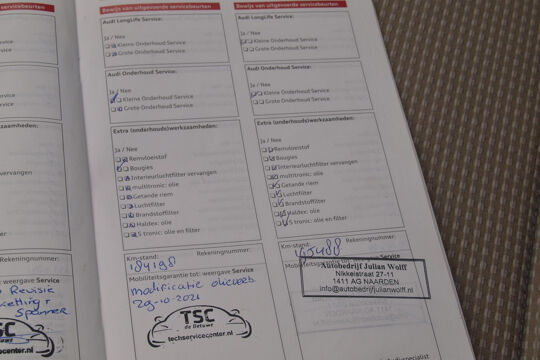 Bewijs van uitgevoerde servicebeurten
Audi LongLife Service:
Ja / Nee
Kleine Onderhoud Service
Grote Onderhoud Service
Audi Onderhoud Service:
Ja / Nee
Kleine Onderhoud Service
Grote Onderhoud Service
Extra (onderhouds)werkzaamheden:
Ja / Nee
Remvloeistof
Bougies
Interieurluchtfilter vervangen
multitronic: olie
Getande riem
Luchtfilter
Brandstoffilter
Haldex: olie
S tronic: olie en filter
Km-stand: Rekeningnummer:
184198
Mobiliteitsgarantie tot: weergave Service
modificatie
29-10-2021
TSC
de Betuwe
techservicecenter.nl
Bewijs van uitgevoerde servicebeurten
Audi LongLife Service:
Ja / Nee
Kleine Onderhoud Service
Grote Onderhoud Service
Audi Onderhoud Service:
Ja / Nee
Kleine Onderhoud Service
Grote Onderhoud Service
Extra (onderhouds)werkzaamheden:
Ja / Nee
Remvloeistof
Bougies
Interieurluchtfilter vervangen
multitronic: olie
Getande riem
Luchtfilter
Brandstoffilter
Haldex: olie
S tronic: olie en filter
Km-stand: Rekeningnummer:
Mobiliteitsgarantie tot: weergave Service
Autobedrijf Julian Wolff
Nikkelstraat 27-11
1411 AG NAARDEN
info@autobedrijfjulianwolff.nl